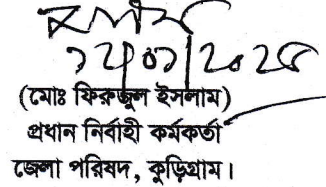 (মোঃ ফিরুজুল ইসলাম)
প্রধান নির্বাহী কর্মকর্তা
জেলা পরিষদ, কুড়িগ্রাম।